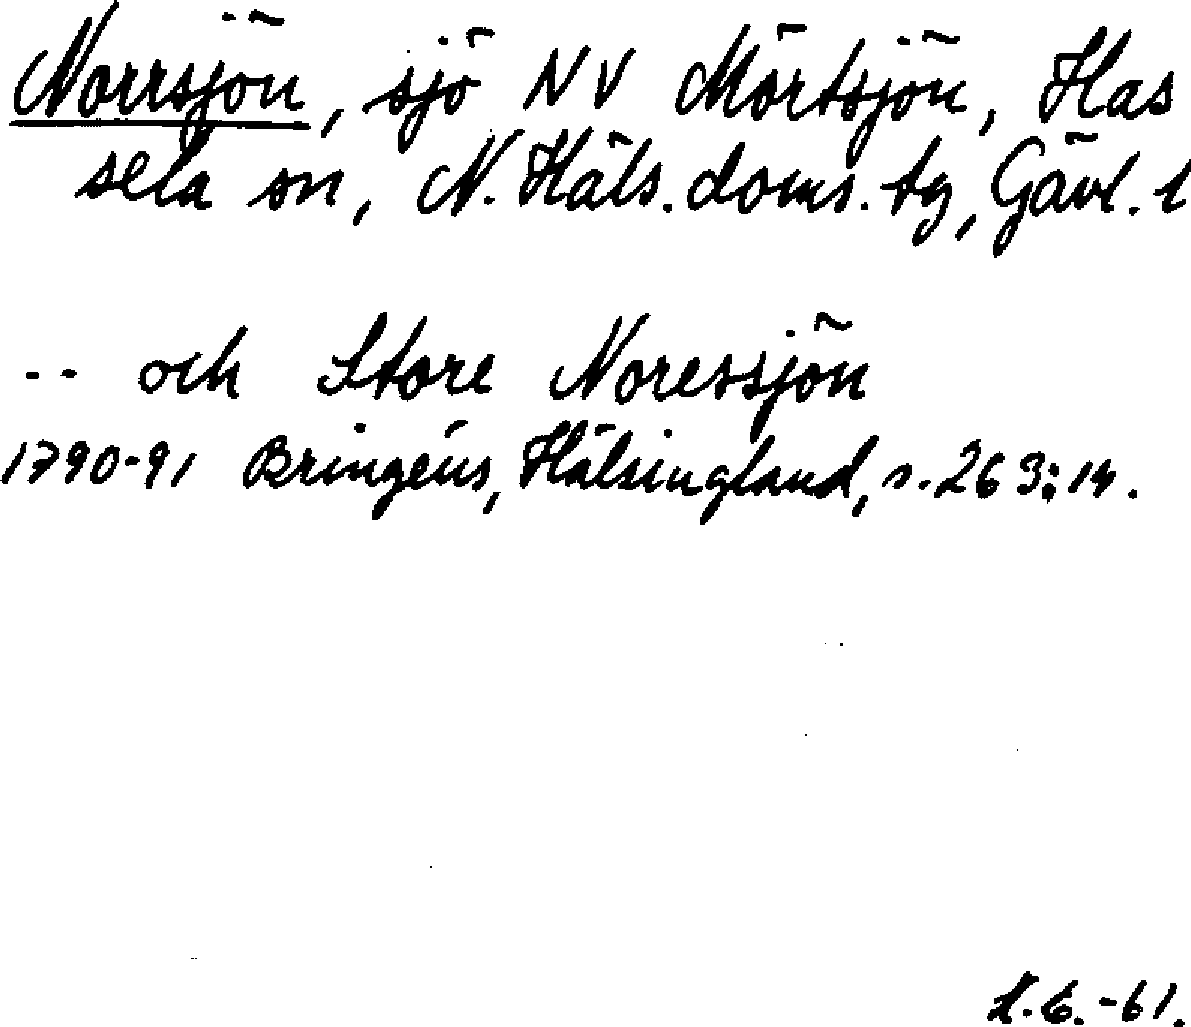 Norrsjön, sjö NV Mörtsjön, Has
sela sn, N. Häls. doms. tg, Gävl. l
-- och Store Noressjön
1790-91 Bringéus, Hälsingland, s. 263:14.
L.G.-61.